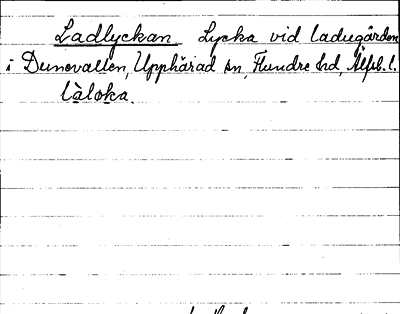 Ladlyckan Lycka vid ladugården
i Dunevallen, Upphärad sn, Flundre hd, Älfsb. l.
làloka.